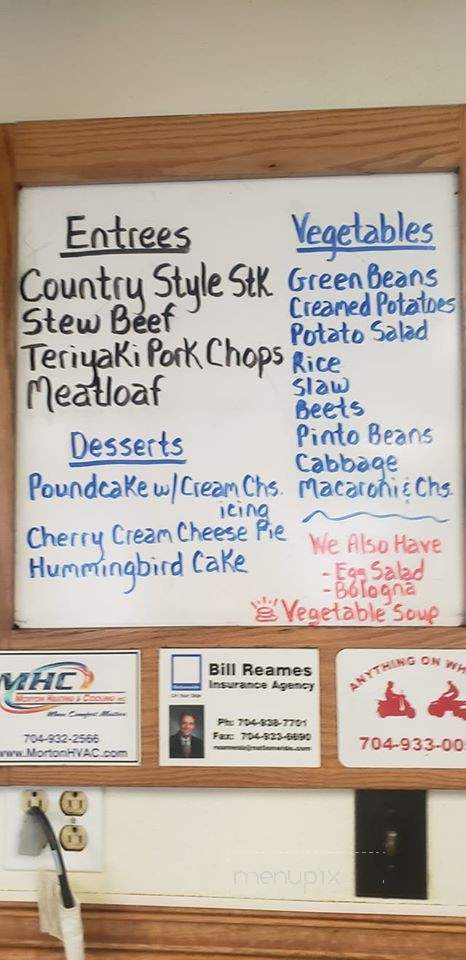 Entrees
Country Style Stk
Stew Beef
Teriyaki Pork Chops
Meatloaf
Desserts
Poundcake w/Cream Chs.
icing
Cherry Cream Cheese Pie
Hummingbird Cake
Vegetables
Green Beans
Creamed Potatoes
Potato Salad
Rice
Slaw
Beets
Pinto Beans
Cabbage
Macaroni & Chs.
We Also Have
- Egg Salad
- Bologna
Vegetable Soup
MHC
Morton Heating & Cooling
When Comfort Matters
704-932-2566
www.MortonHVAC.com
Nationwide
On Your Side
Bill Reames
Insurance Agency
Ph: 704-938-7701
Fax: 704-933-6690
ANYTHING ON WH
704-933-00
menupix